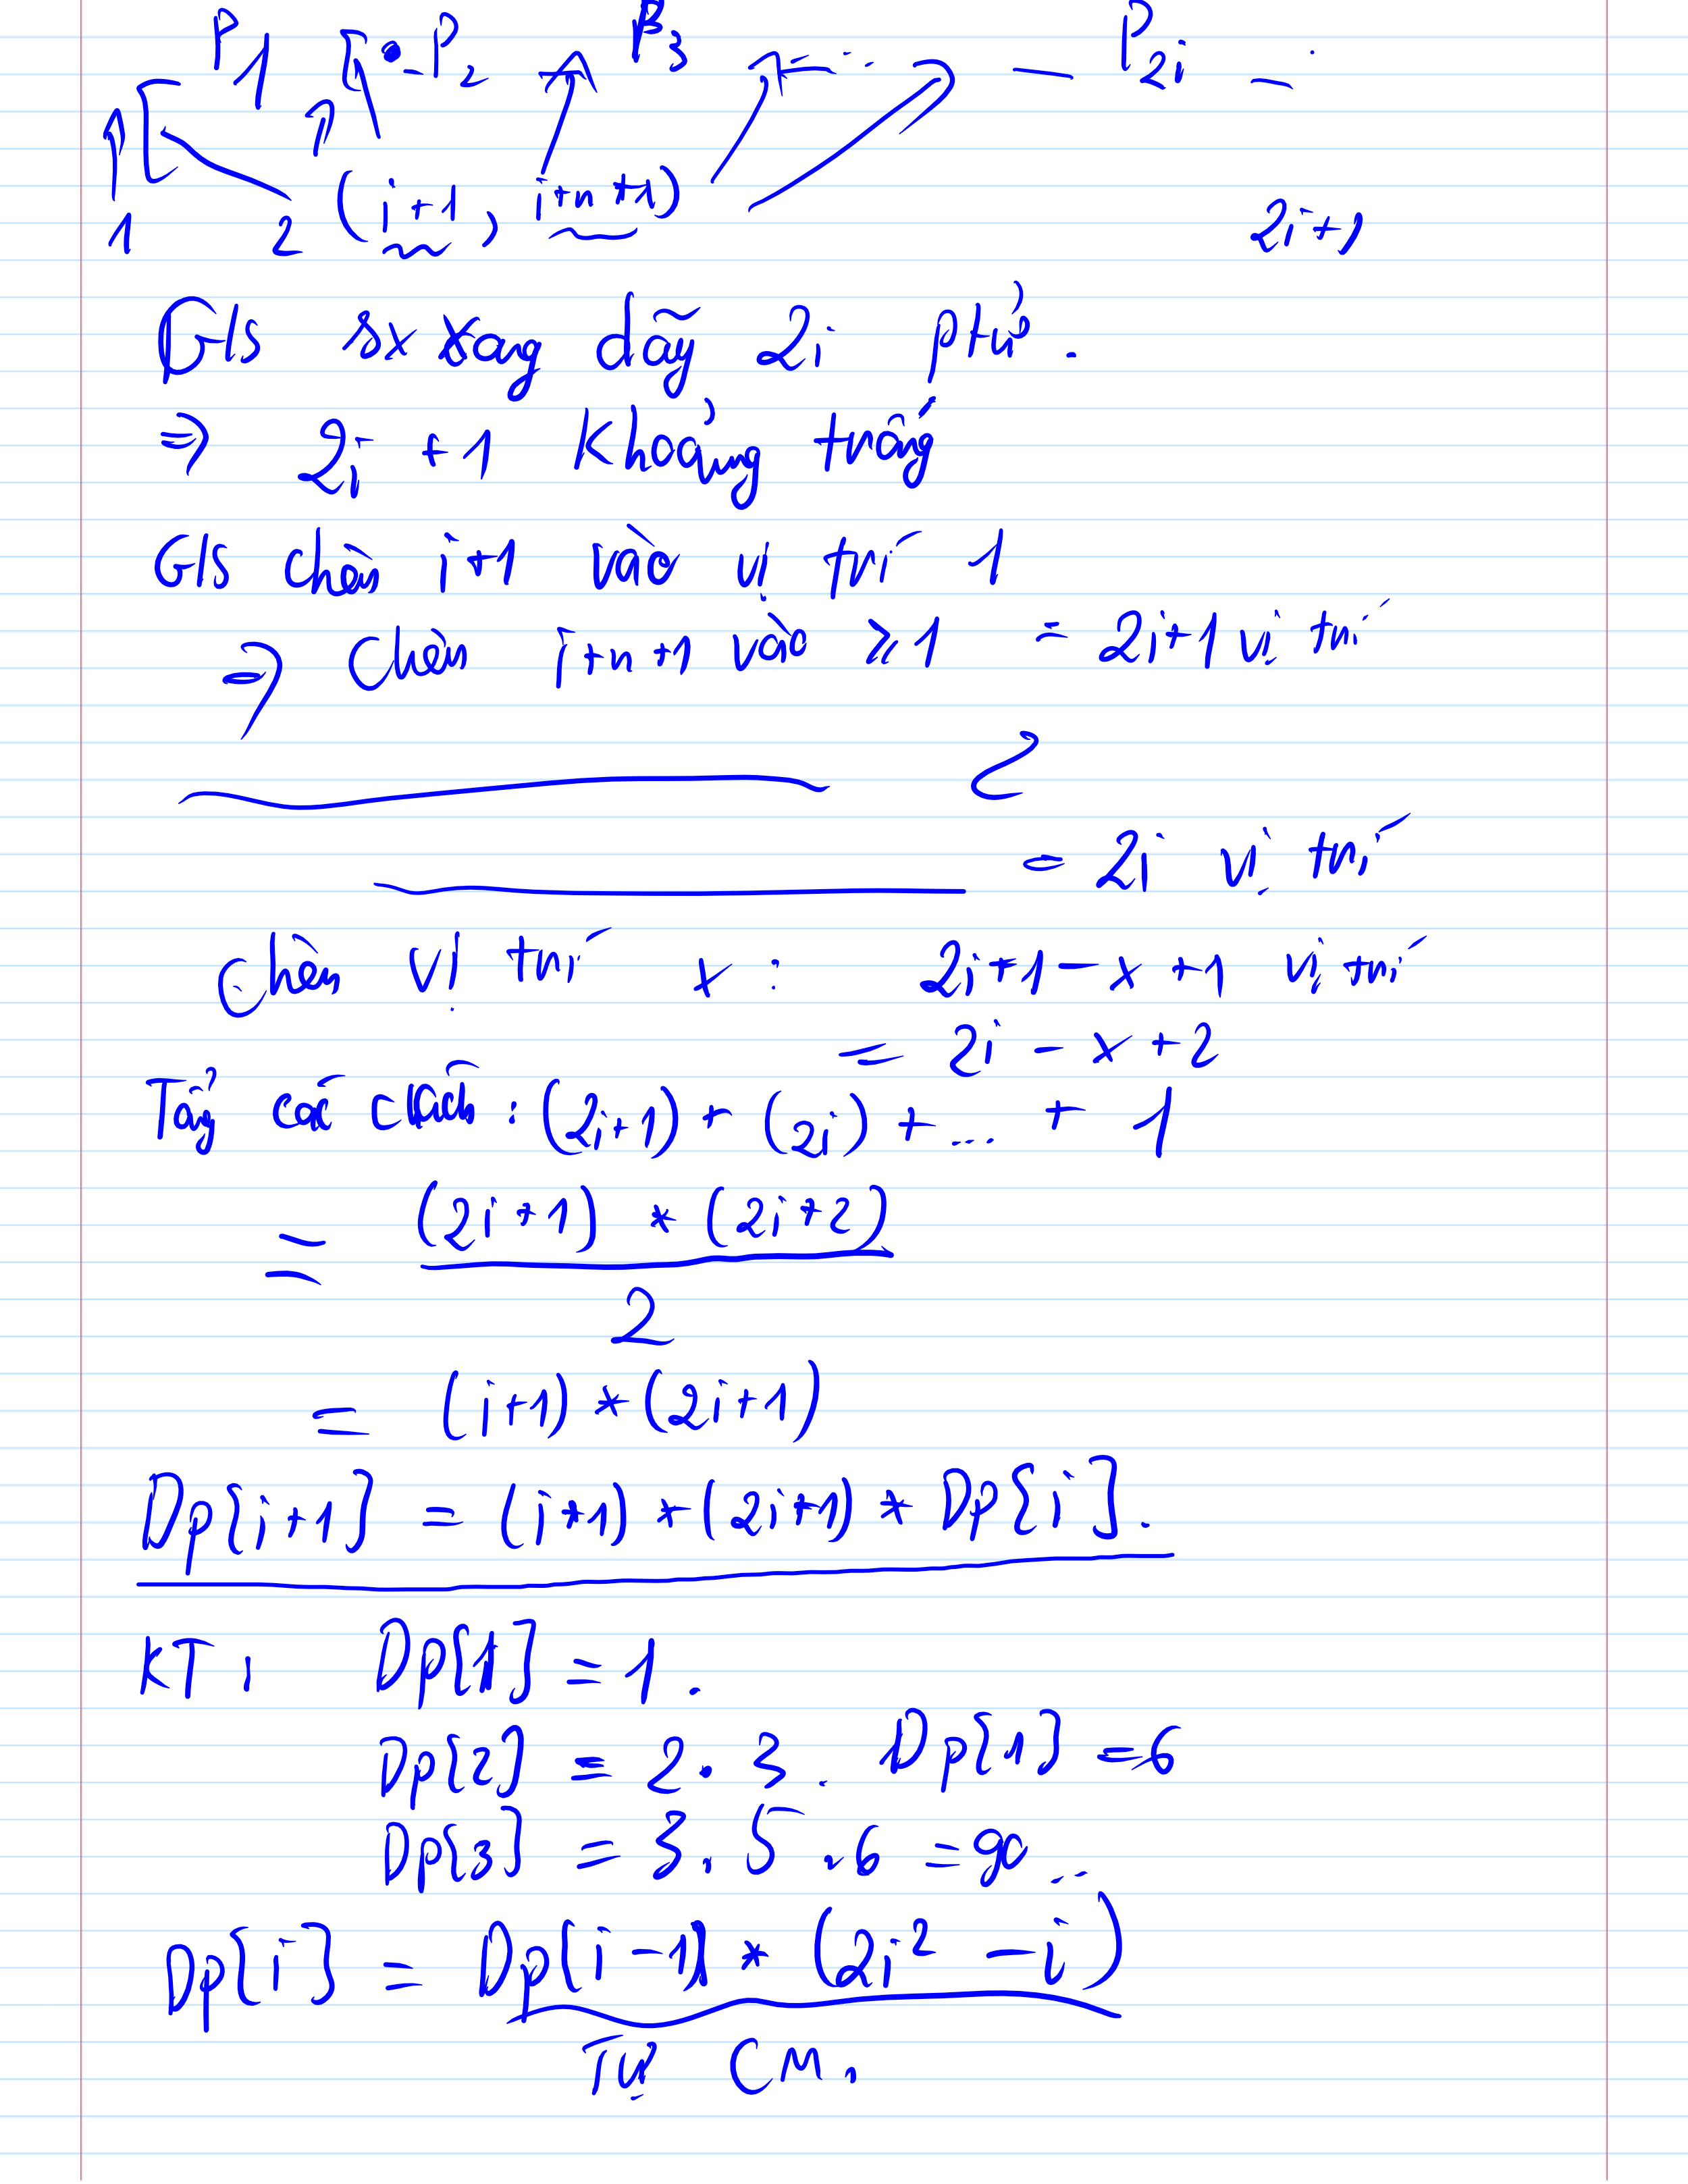 P1 P2 P3 P2i
1 2 (i+1, i+n+1) 2i+1
Gls sx xong dãy 2i ptử.
⇒ 2i + 1 khoảng trống
Gls chèn i+1 vào vị trí 1
⇒ chèn i+n+1 vào ≥ 1 = 2i+1 vị trí
2
= 2i vị trí
chèn vị trí x : 2i+1 - x + 1 vị trí
= 2i - x + 2
Tổng các cách : (2i+1) + (2i) + ... + 1
= (2i+1) * (2i+2)
2
= (i+1) * (2i+1)
Dp[i+1] = (i+1) * (2i+1) * Dp[i].
KT : Dp[1] = 1.
Dp[2] = 2 . 3 . Dp[1] = 6
Dp[3] = 3 . 5 . 6 = 90 ...
Dp[i] = Dp[i-1] * (2i² - i)
Tự CM.